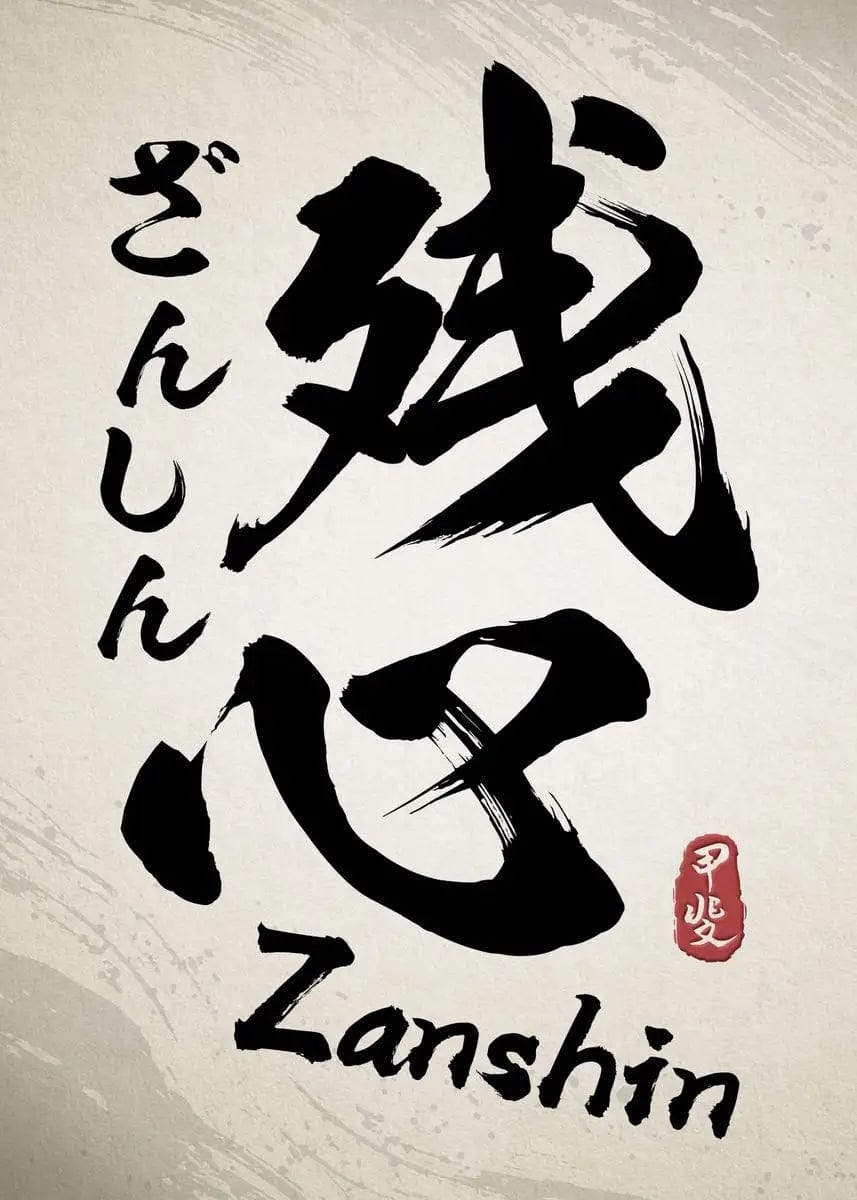 残心
ざんしん
Zanshin
甲斐